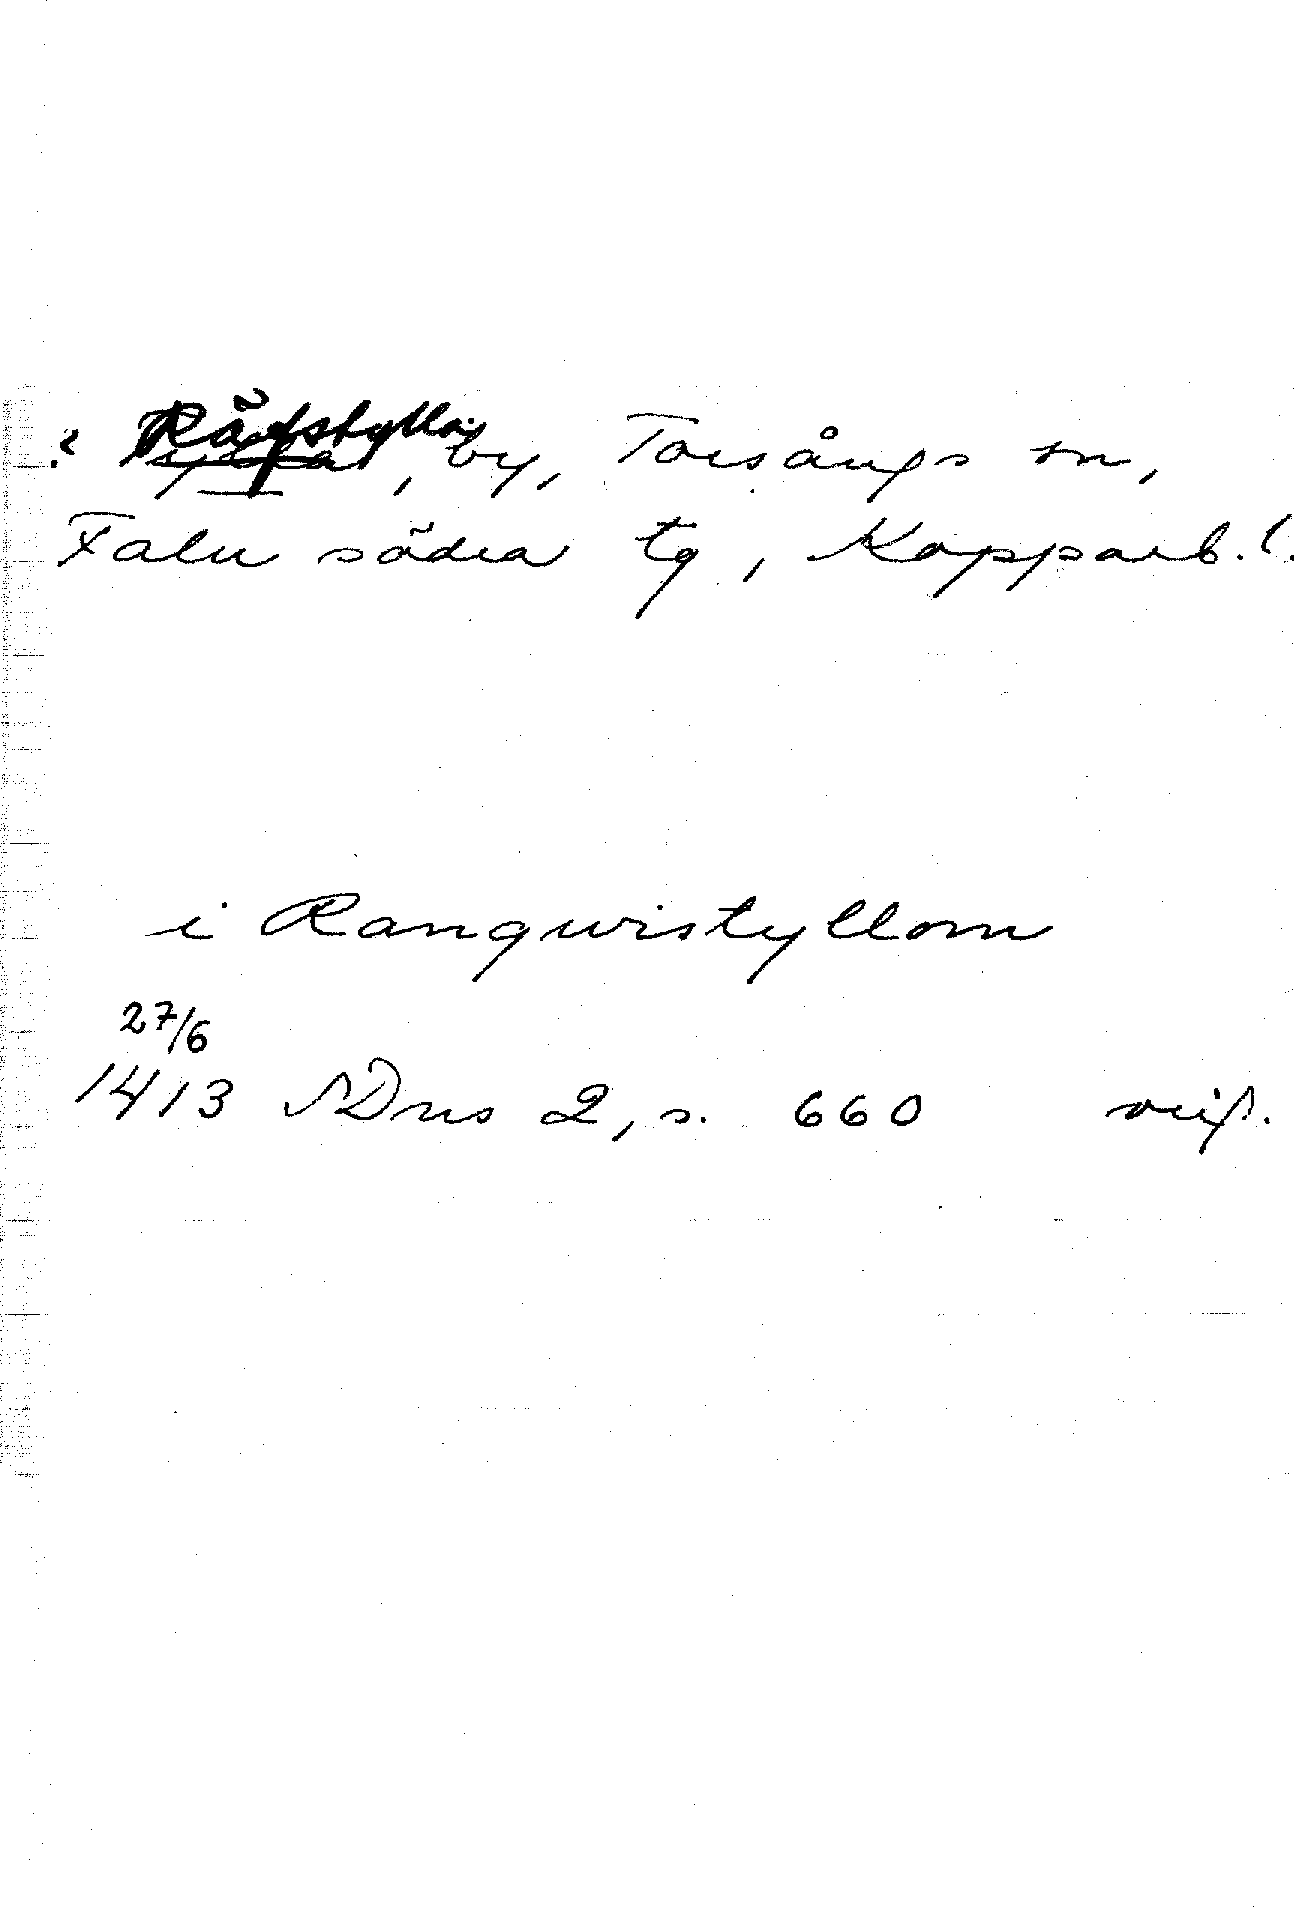 ? Räfstylla, by, Torsångs sn,
Falu södra tg, Kopparb. l.
i Ranqwistyllom
27/6
1413 SDns 2, s. 660